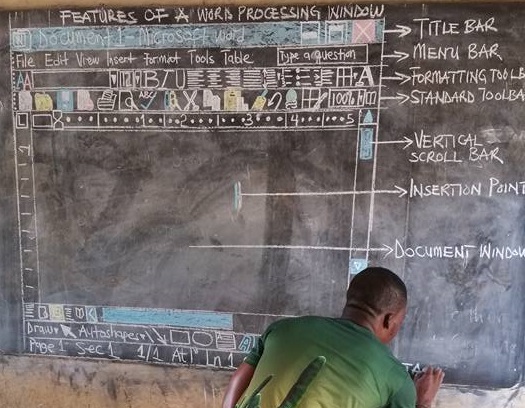 FEATURES OF A WORD PROCESSING WINDOW
Document 1 - Microsoft Word
TITLE BAR
File Edit View Insert Format Tools Table
Type a question
MENU BAR
AA
B I U
A
FORMATTING TOOLB
ABC
100%
STANDARD TOOLBA
1 2 3 4 5
VERTICAL
SCROLL BAR
INSERTION POINT
DOCUMENT WINDOW
Draw Autoshapes
Page 1 Sec 1 1/1 At Ln 1